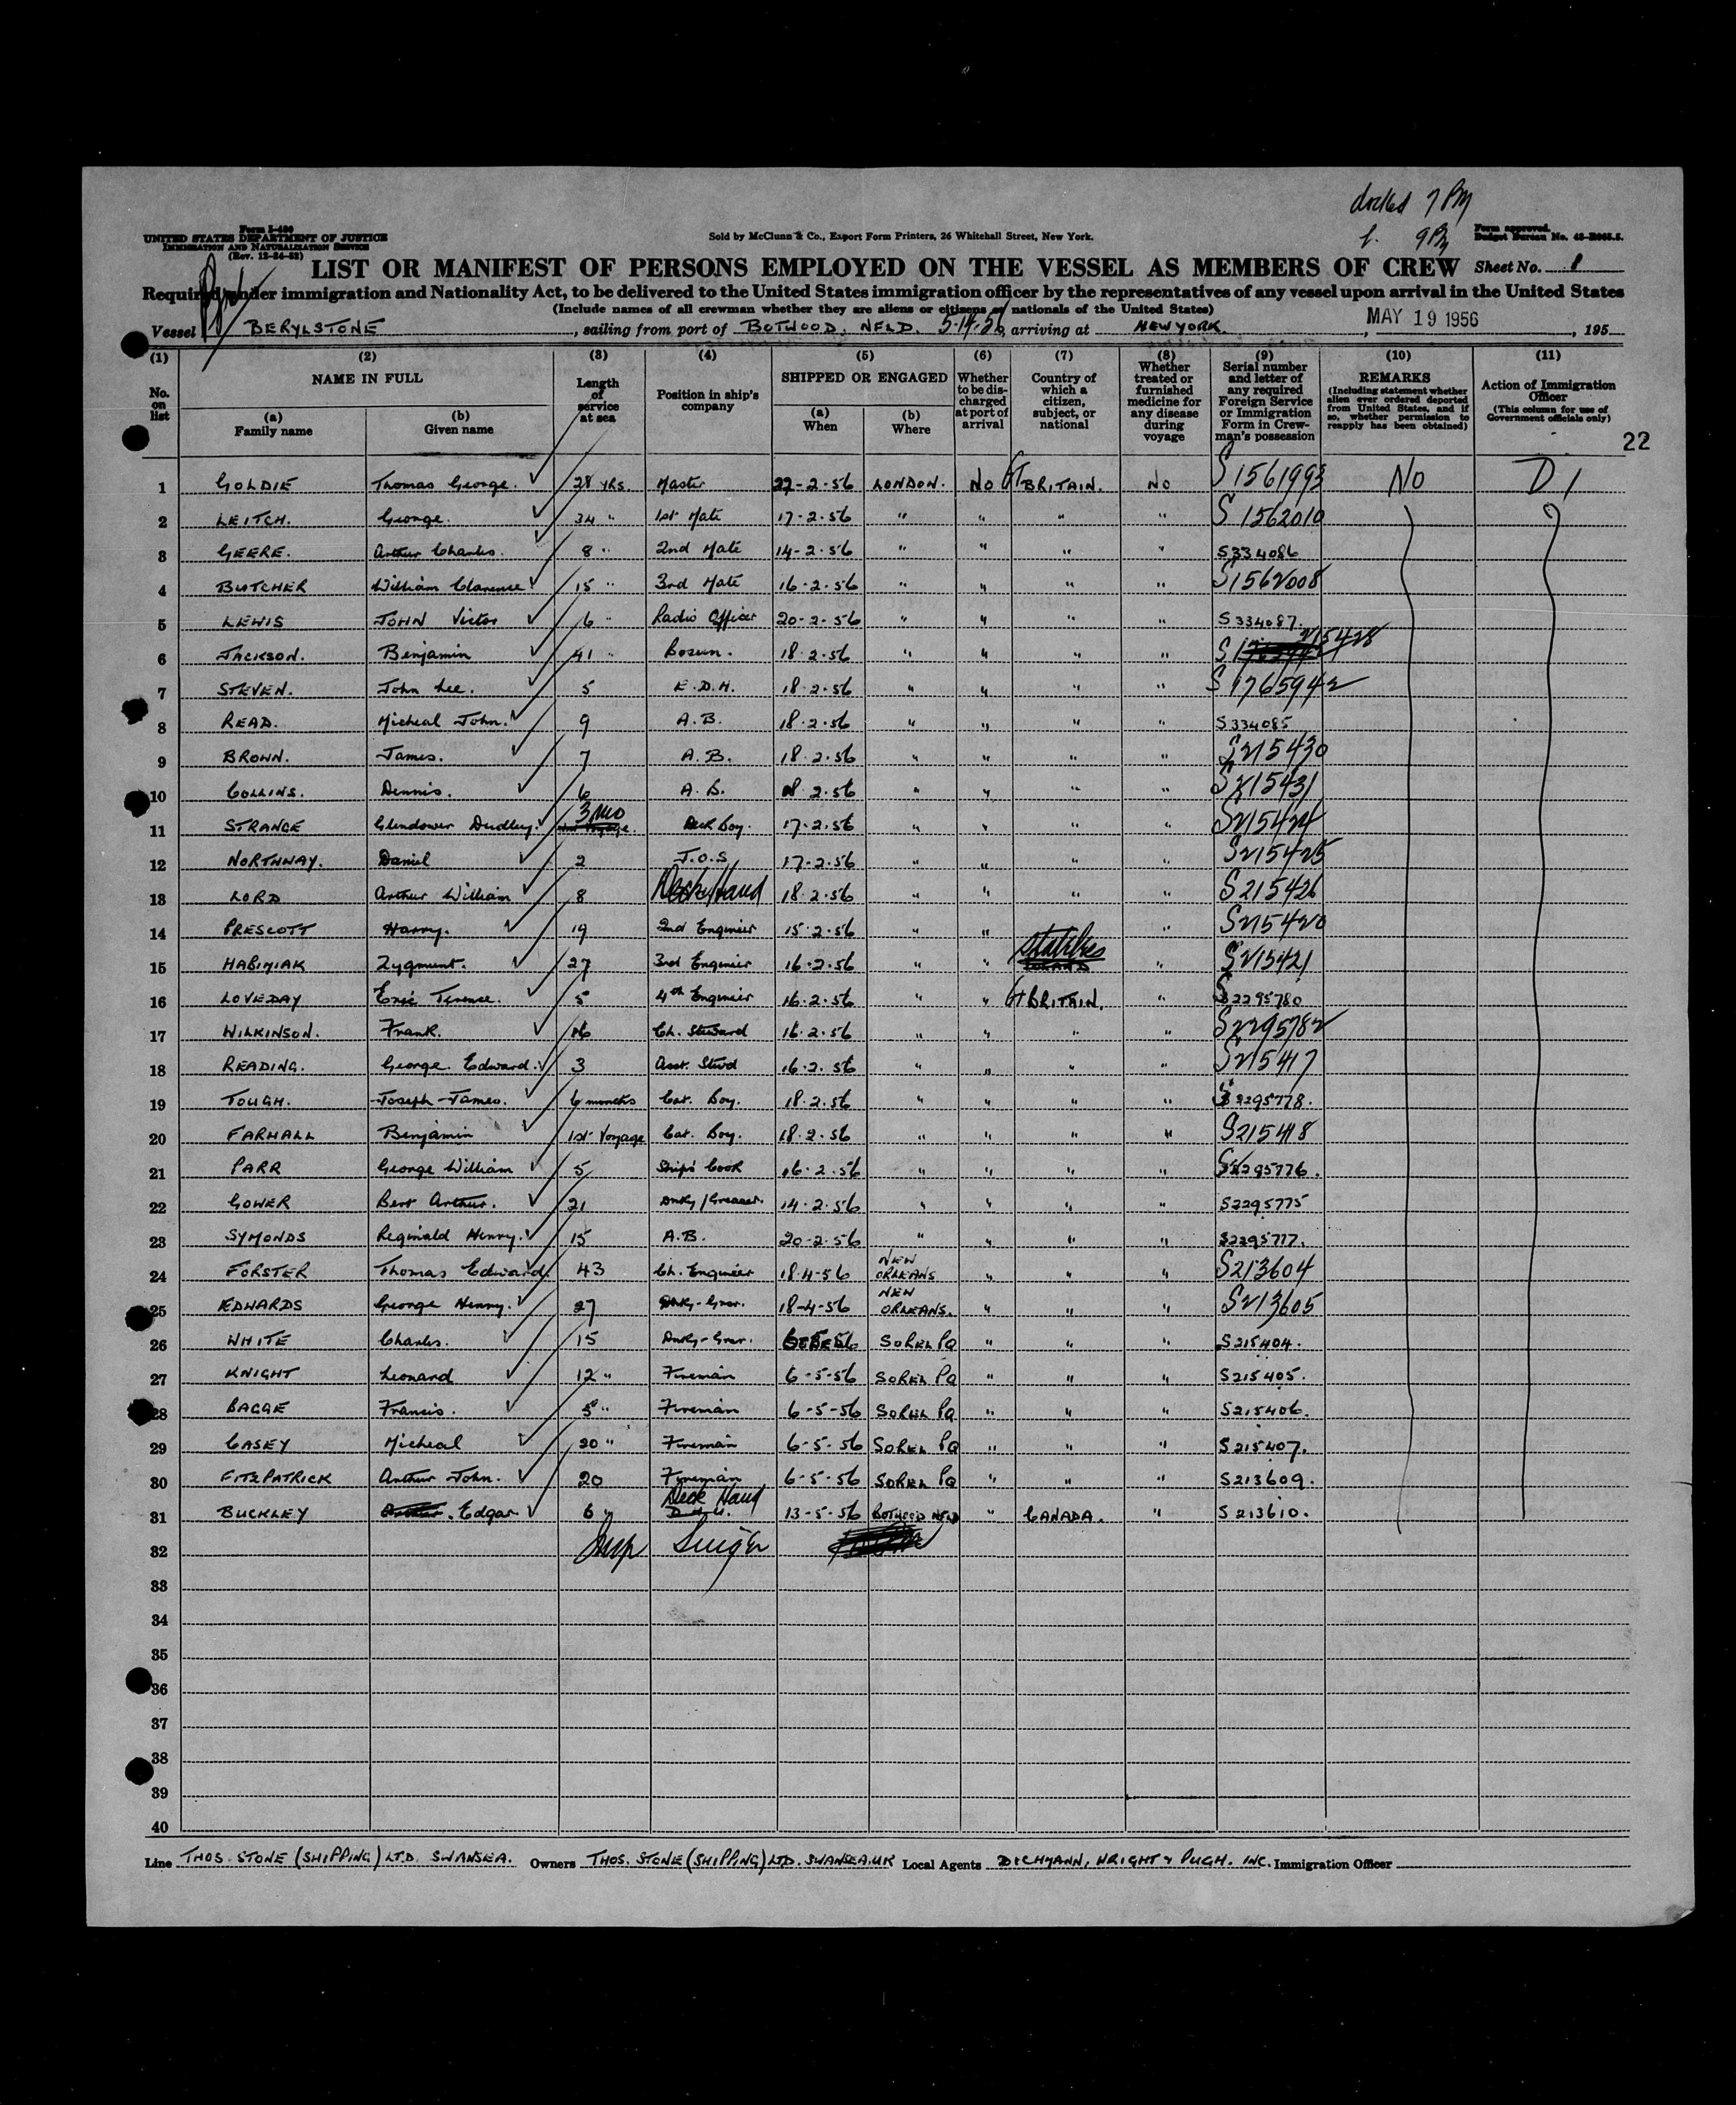 docked 7 PM
9 PM
Form I-480
UNITED STATES DEPARTMENT OF JUSTICE
IMMIGRATION AND NATURALIZATION SERVICE
(Rev. 12-24-52)
Sold by McClunn & Co., Export Form Printers, 26 Whitehall Street, New York.
Form approved.
Budget Bureau No. 43-R065.5.
LIST OR MANIFEST OF PERSONS EMPLOYED ON THE VESSEL AS MEMBERS OF CREW Sheet No. 1
Required under immigration and Nationality Act, to be delivered to the United States immigration officer by the representatives of any vessel upon arrival in the United States
(Include names of all crewman whether they are aliens or citizens or nationals of the United States)
Vessel BERYLSTONE, sailing from port of BOTWOOD, NFLD. 5-14-56, arriving at NEW YORK, MAY 19 1956, 195
(1) (2) (3) (4) (5) (6) (7) (8) (9) (10) (11)
No. on list
NAME IN FULL
(a) Family name
(b) Given name
Length of service at sea
Position in ship's company
SHIPPED OR ENGAGED
(a) When
(b) Where
Whether to be discharged at port of arrival
Country of which a citizen, subject, or national
Whether treated or furnished medicine for any disease during voyage
Serial number and letter of any required Foreign Service or Immigration Form in Crewman's possession
REMARKS
(Including statement whether alien ever ordered deported from United States, and if so, whether permission to reapply has been obtained)
Action of Immigration Officer
(This column for use of Government officials only)
22
1 GOLDIE Thomas George. 28 YRS. Master 22-2-56 LONDON. NO GT BRITAIN. NO S1561993 No D1
2 LEITCH. George. 34 " 1st Mate 17-2-56 " " " " S 1562010
3 GEERE. Arthur Charles. 8 " 2nd Mate 14-2-56 " " " " S334086
4 BUTCHER William Clarence 15 " 3rd Mate 16-2-56 " " " " S1562008
5 LEWIS JOHN Victor 6 " Radio Officer 20-2-56 " " " " S334087.
6 JACKSON. Benjamin 41 " Bosun. 18-2-56 " " " " S 215428
7 STEVEN. John Lee. 5 E.D.H. 18-2-56 " " " " S 1765942
8 READ. Micheal John. 9 A.B. 18-2-56 " " " " S334085
9 BROWN. James. 7 A.B. 18-2-56 " " " " S215430
10 COLLINS. Dennis. 6 A.B. 18-2-56 " " " " S215431
11 STRANGE Glendower Dudley. 3 mo Deck Boy. 17-2-56 " " " " S215424
12 NORTHWAY. Daniel 2 J.O.S. 17-2-56 " " " " S215425
13 LORD Arthur William 8 Deck Hand 18-2-56 " " " " S215426
14 PRESCOTT Harry. 19 2nd Engineer 15-2-56 " " " S215420
15 HABINIAK Zygmunt. 27 3rd Engineer 16-2-56 " " Stateless " S215421
16 LOVEDAY Eric Terence. 5 4th Engineer 16-2-56 " " GT BRITAIN. " S2295780
17 WILKINSON. Frank. 16 Ch. Steward 16-2-56 " " " " S2295782
18 READING. George Edward. 3 Asst. Stwd 16-2-56 " " " " S215417
19 TOUGH. Joseph James. 6 months Cat. Boy. 18-2-56 " " " " S2295778.
20 FARHALL Benjamin 1st Voyage Cat. Boy. 18-2-56 " " " " S215418
21 PARR George William 5 Ship's Cook 16-2-56 " " " " S2295776.
22 GOWER Bert Arthur. 21 Dnky/Greaser. 14-2-56 " " " " S2295775
23 SYMONDS Reginald Henry. 15 A.B. 20-2-56 " " " " S2295777.
24 FORSTER Thomas Edward 43 Ch. Engineer 18-4-56 NEW ORLEANS " " " S213604
25 EDWARDS George Henry. 27 Dnky-Grsr. 18-4-56 NEW ORLEANS. " " " S213605
26 WHITE Charles. 15 Dnky-Grsr. 6-5-56 SOREL PQ " " " S215404.
27 KNIGHT Leonard 12 " Fireman 6-5-56 SOREL PQ " " " S215405.
28 BAGGE Francis. 5 " Fireman 6-5-56 SOREL PQ " " " S215406.
29 CASEY Micheal 20 " Fireman 6-5-56 SOREL PQ " " " S215407.
30 FITZPATRICK Arthur John. 20 Fireman 6-5-56 SOREL PQ " " " S213609.
31 BUCKLEY Edgar 6 " Deck Hand 13-5-56 BOTWOOD NFLD " CANADA. " S213610.
32 Insp Singer
33
34
35
36
37
38
39
40
Line THOS. STONE (SHIPPING) LTD. SWANSEA. Owners THOS. STONE (SHIPPING) LTD. SWANSEA. UK Local Agents DICHMANN, WRIGHT & PUGH. INC. Immigration Officer